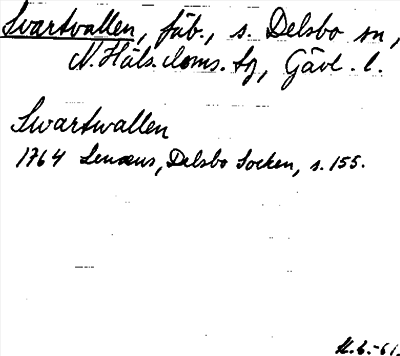 Svartvallen, fäb., s. Delsbo sn,
N. Häls. doms. tg, Gävl. l.
Swartwallen
1764 Lenæus, Delsbo Socken, s. 155.